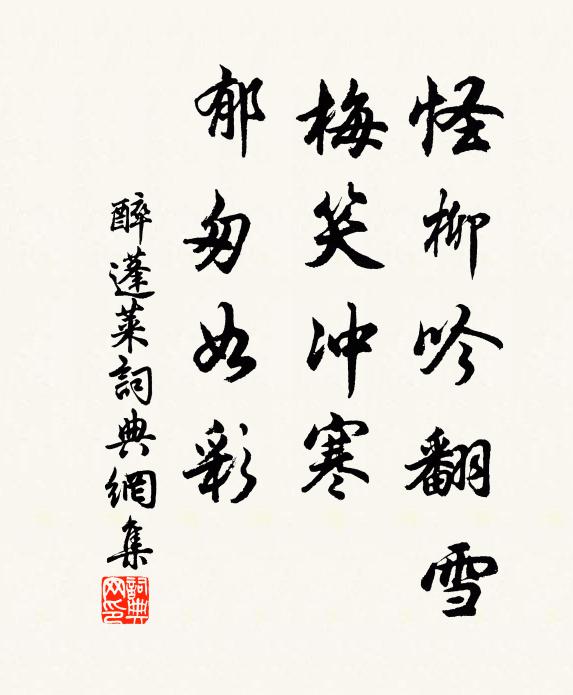 怪柳吟翻雪
梅笑冲寒
郁匆如彩
醉蓬莱詞典網集
詞典
网印